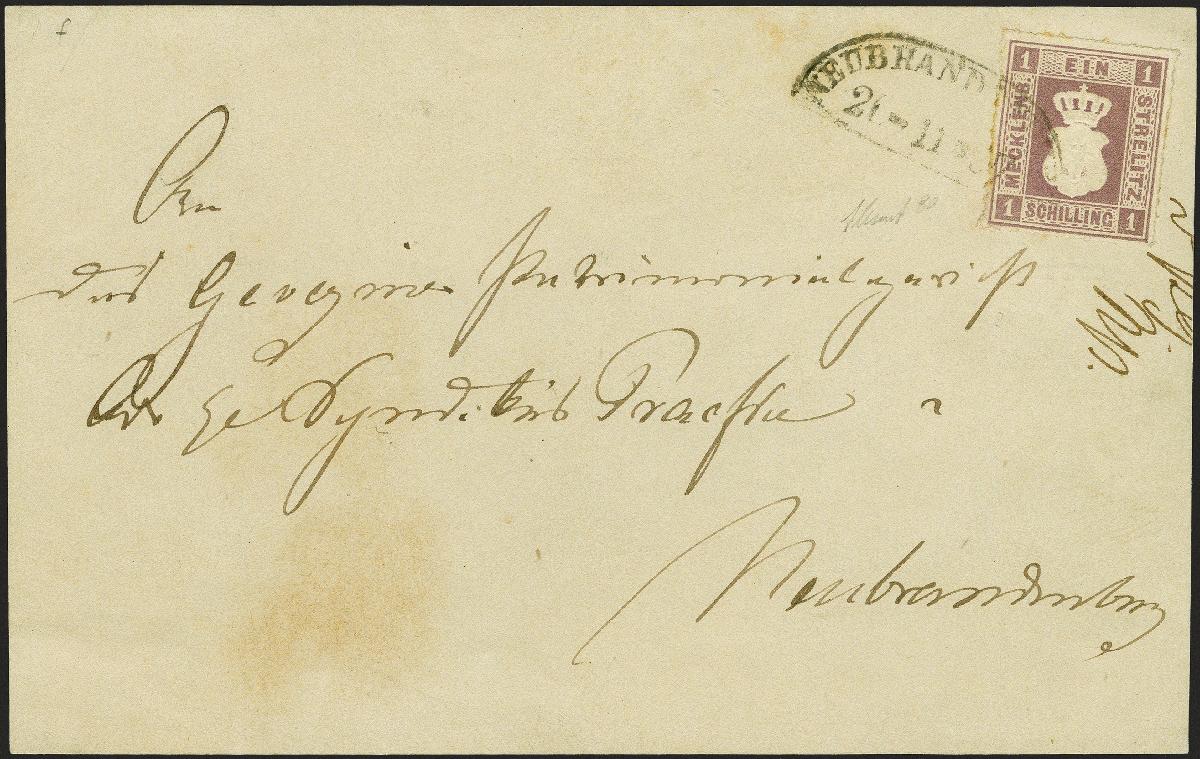 NEUBRAND
1 EIN 1
MECKLENB
STRELITZ
1 SCHILLING 1
An
das Geveziner Patrimonialgericht
Syndikus Praefke
Neubrandenburg